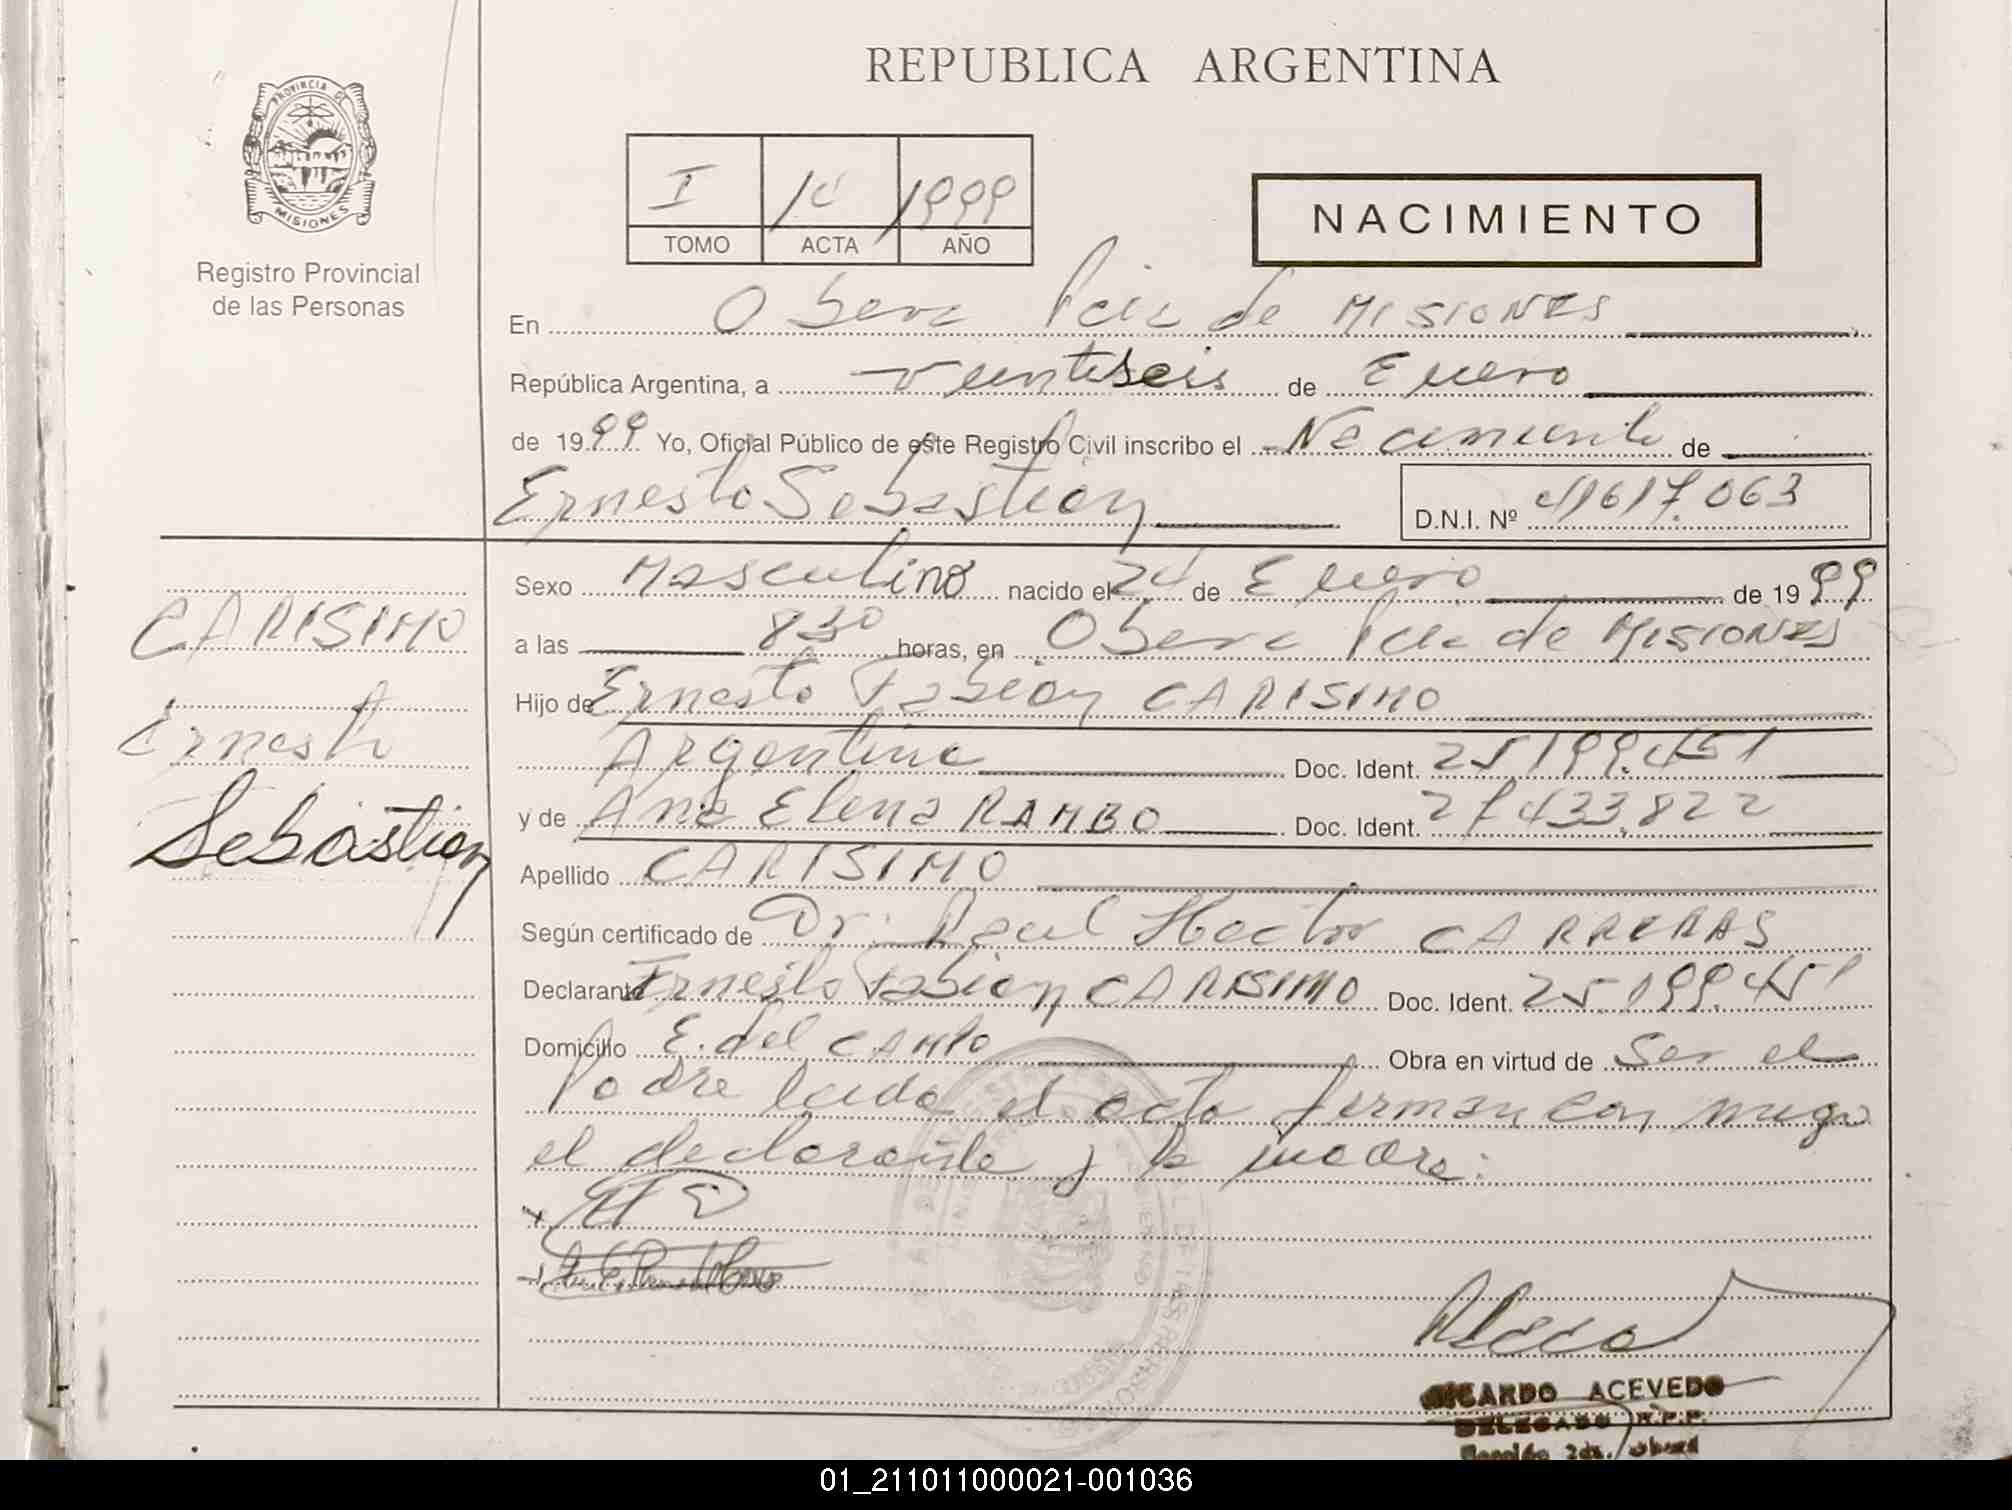 REPUBLICA ARGENTINA
PROVINCIA DE
MISIONES
Registro Provincial
de las Personas
I 14 1999
TOMO ACTA AÑO
NACIMIENTO
En Obera Pcia de MISIONES
República Argentina, a veintiseis de Enero
de 1999 Yo, Oficial Público de este Registro Civil inscribo el Nacimiento de
Ernesto Sebastian
D.N.I. Nº 41617.063
CARISIMO
Ernesto
Sebastian
Sexo Masculino nacido el 24 de Enero de 1999
a las 8 30 horas, en Obera Pcia de MISIONES
Hijo de Ernesto Fabian CARISIMO
Argentino Doc. Ident. 25199.451
y de Ana Elena RAMBO Doc. Ident. 27433.822
Apellido CARISIMO
Según certificado de Dr. Raul Hector CARRERAS
Declarante Ernesto Fabian CARISIMO Doc. Ident. 25.199.451
Domicilio E. del CAMPO Obra en virtud de Ser el
Padre leida el acta firman con migo
el declarante y la madre:
RICARDO ACEVEDO
DELEGADO R.P.P.
Sección 2da. Oberá
01_211011000021-001036